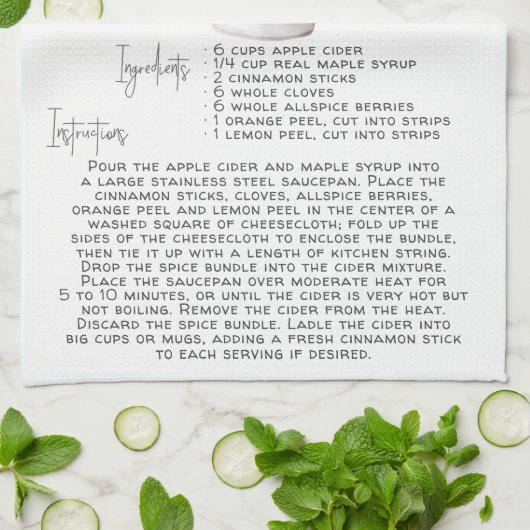 Ingredients
· 6 CUPS APPLE CIDER
· 1/4 CUP REAL MAPLE SYRUP
· 2 CINNAMON STICKS
· 6 WHOLE CLOVES
· 6 WHOLE ALLSPICE BERRIES
· 1 ORANGE PEEL, CUT INTO STRIPS
· 1 LEMON PEEL, CUT INTO STRIPS
Instructions
POUR THE APPLE CIDER AND MAPLE SYRUP INTO
A LARGE STAINLESS STEEL SAUCEPAN. PLACE THE
CINNAMON STICKS, CLOVES, ALLSPICE BERRIES,
ORANGE PEEL AND LEMON PEEL IN THE CENTER OF A
WASHED SQUARE OF CHEESECLOTH; FOLD UP THE
SIDES OF THE CHEESECLOTH TO ENCLOSE THE BUNDLE,
THEN TIE IT UP WITH A LENGTH OF KITCHEN STRING.
DROP THE SPICE BUNDLE INTO THE CIDER MIXTURE.
PLACE THE SAUCEPAN OVER MODERATE HEAT FOR
5 TO 10 MINUTES, OR UNTIL THE CIDER IS VERY HOT BUT
NOT BOILING. REMOVE THE CIDER FROM THE HEAT.
DISCARD THE SPICE BUNDLE. LADLE THE CIDER INTO
BIG CUPS OR MUGS, ADDING A FRESH CINNAMON STICK
TO EACH SERVING IF DESIRED.